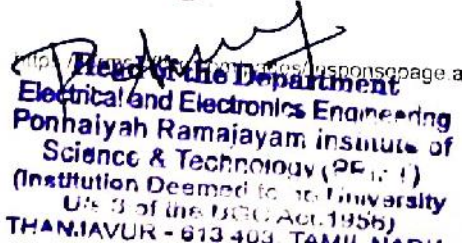 Head of the Department
Electrical and Electronics Engineering
Ponnaiyah Ramajayam institute of
Science & Technology
(Institution Deemed to be University
U/s 3 of the UGC Act 1956)
THANJAVUR - 613 403, TAMIL NADU